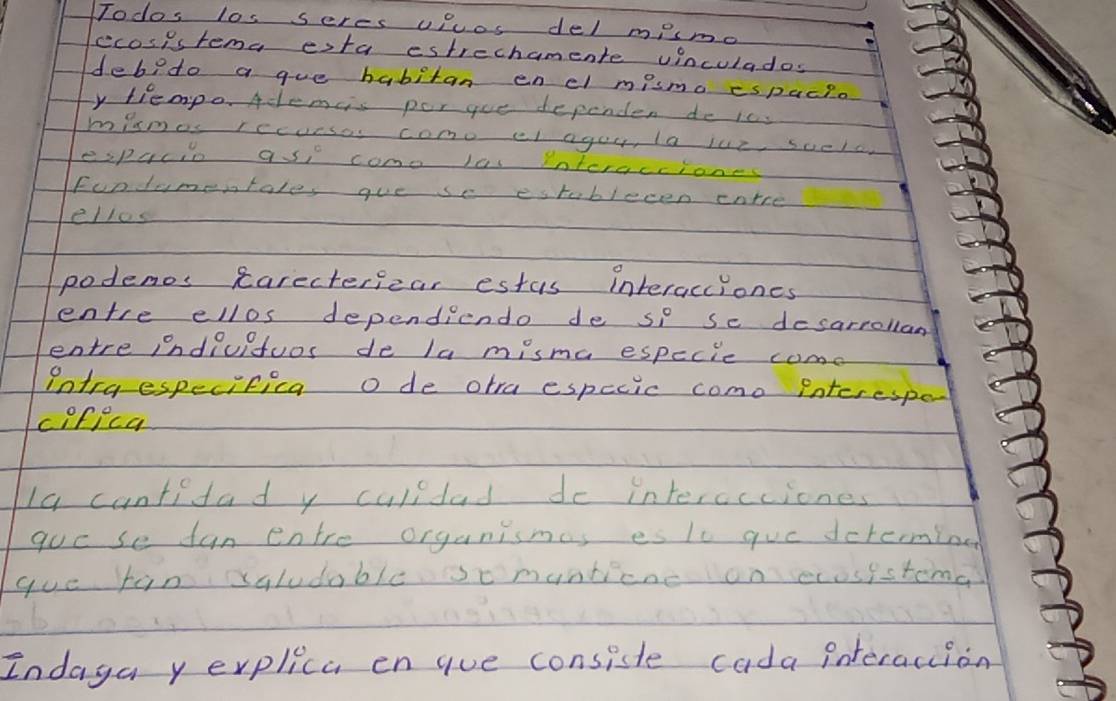 Todos los seres vivos del mismo
ecosistema esta estrechamente vinculados
debido a que habitan en el mismo espacio
y tiempo. Ademais por que dependen de las
mismos recursos como el agua, la luz, suelo,
espacio asi como las interacciones
fundamentales que se establecen entre
ellos
podemos karecterizar estas interacciones
entre ellos dependiendo de si se desarrollan
entre individuos de la misma especie como
intraespecifica o de otra especie como interespe-
cifica
la cantidad y calidad de interacciones
que se dan entre organismos es lo que determina
que tan saludable se mantiene un ecosistema
Indaga y explica en que consiste cada interacción